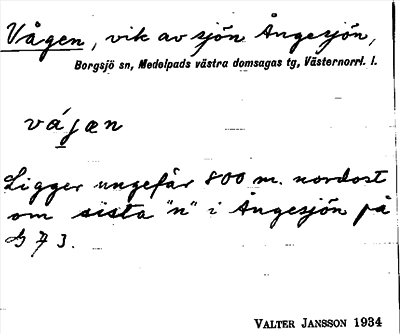 Vågen, vik av sjön Ångesjön,
Borgsjö sn, Medelpads västra domsagas tg, Västernorrl. l.
vágen
Ligger ungefär 800 m. nordost
om sista "n" i Ångesjön på
73.
VALTER JANSSON 1934